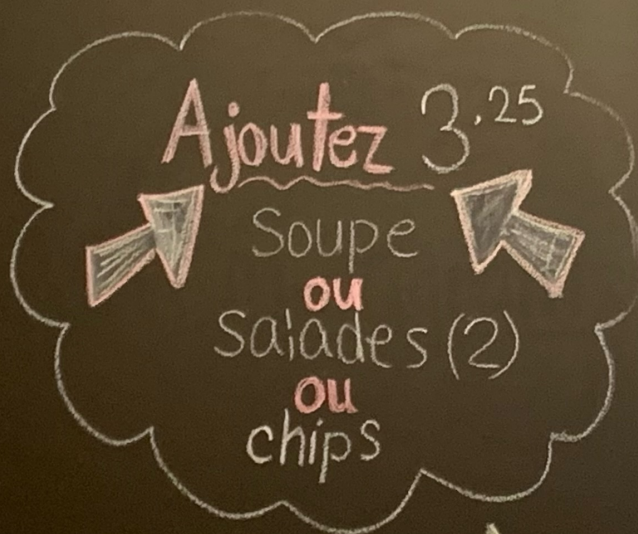 Ajoutez 3.25
Soupe
ou
Salades (2)
ou
chips